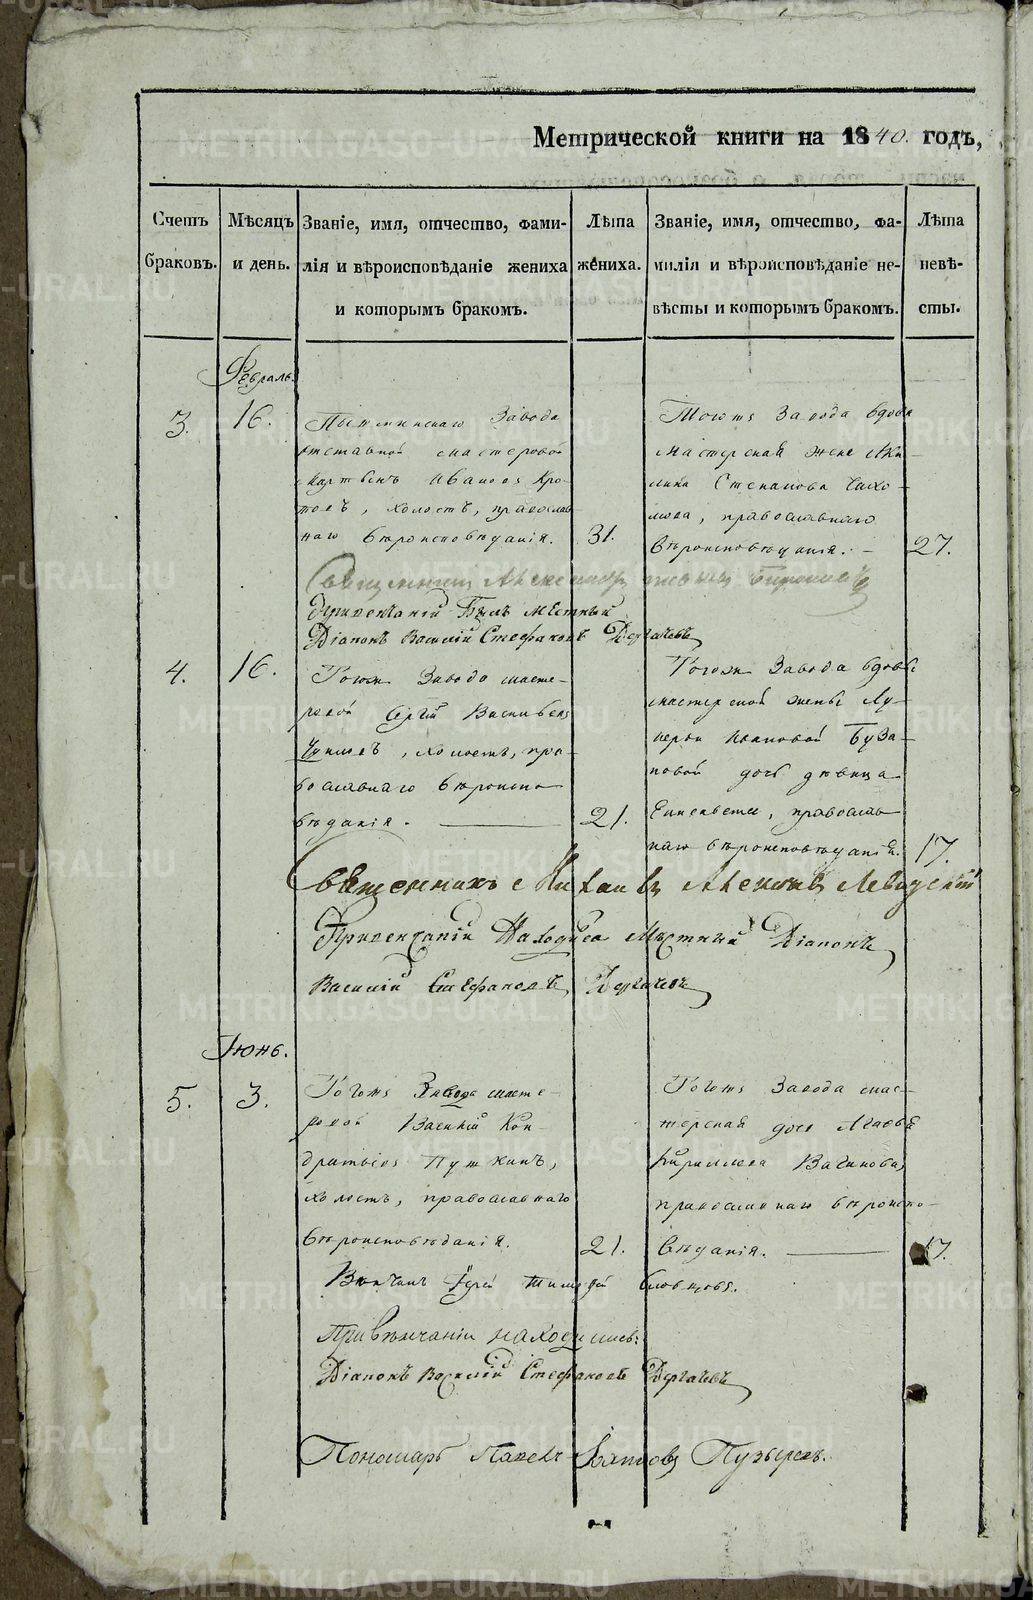 Метрической книги на 1840. годъ,
Счетъ браковъ.
Мѣсяцъ и день.
Званіе, имя, отчество, фами-
лія и вѣроисповѣданіе жениха
и которымъ бракомъ.
Лѣта
жениха.
Званіе, имя, отчество, фа-
милія и вѣроисповѣданіе не-
вѣсты и которымъ бракомъ.
Лѣта
невѣ-
сты.
Февраль.
3.
16.
Пышминскаго Завода
отставной мастеровой
Ивановъ Кро-
товъ, холостъ, православ
наго вѣроисповѣданія.
31.
Тогожъ Завода вдова
мастерская жена Аку-
лина Степанова
православнаго
вѣроисповѣданія. –
27.
Священникъ
Привенчаніи Былъ Местный
Діаконъ Василій Стефановъ Дергачевъ
4.
16.
Тогож Завода масте-
ровой Сергій Васильевъ
холостъ, пра-
вославнаго вѣроиспо
вѣданія.
21.
Тогож Завода вдовы
мастерской жены Лу-
керьи Ивановой Буза-
новой дочь девица
Елисавета, православ
наго вѣроисповѣданія.
17.
Священникъ Михаилъ Левицскій
Привенчаніи Находился Мѣстный Діаконъ
Василій Стефановъ Дергачевъ
Іюнь.
5.
3.
Тогожъ Завода масте-
ровой Василій Кон-
дратьевъ Путкинъ,
холостъ, православнаго
вѣроисповѣданія.
21.
Тогожъ Завода мас-
терская дочь Агафья
Кириллова Вагинова,
православнаго вѣроиспо-
вѣданія.
17.
Венчалъ Іерей Тимофей Словцовъ.
Привѣнчаніи находились:
Діаконъ Василій Стефановъ Дергачевъ
Пономарь Павелъ Пузыревъ.
METRIKI.GASO-URAL.RU